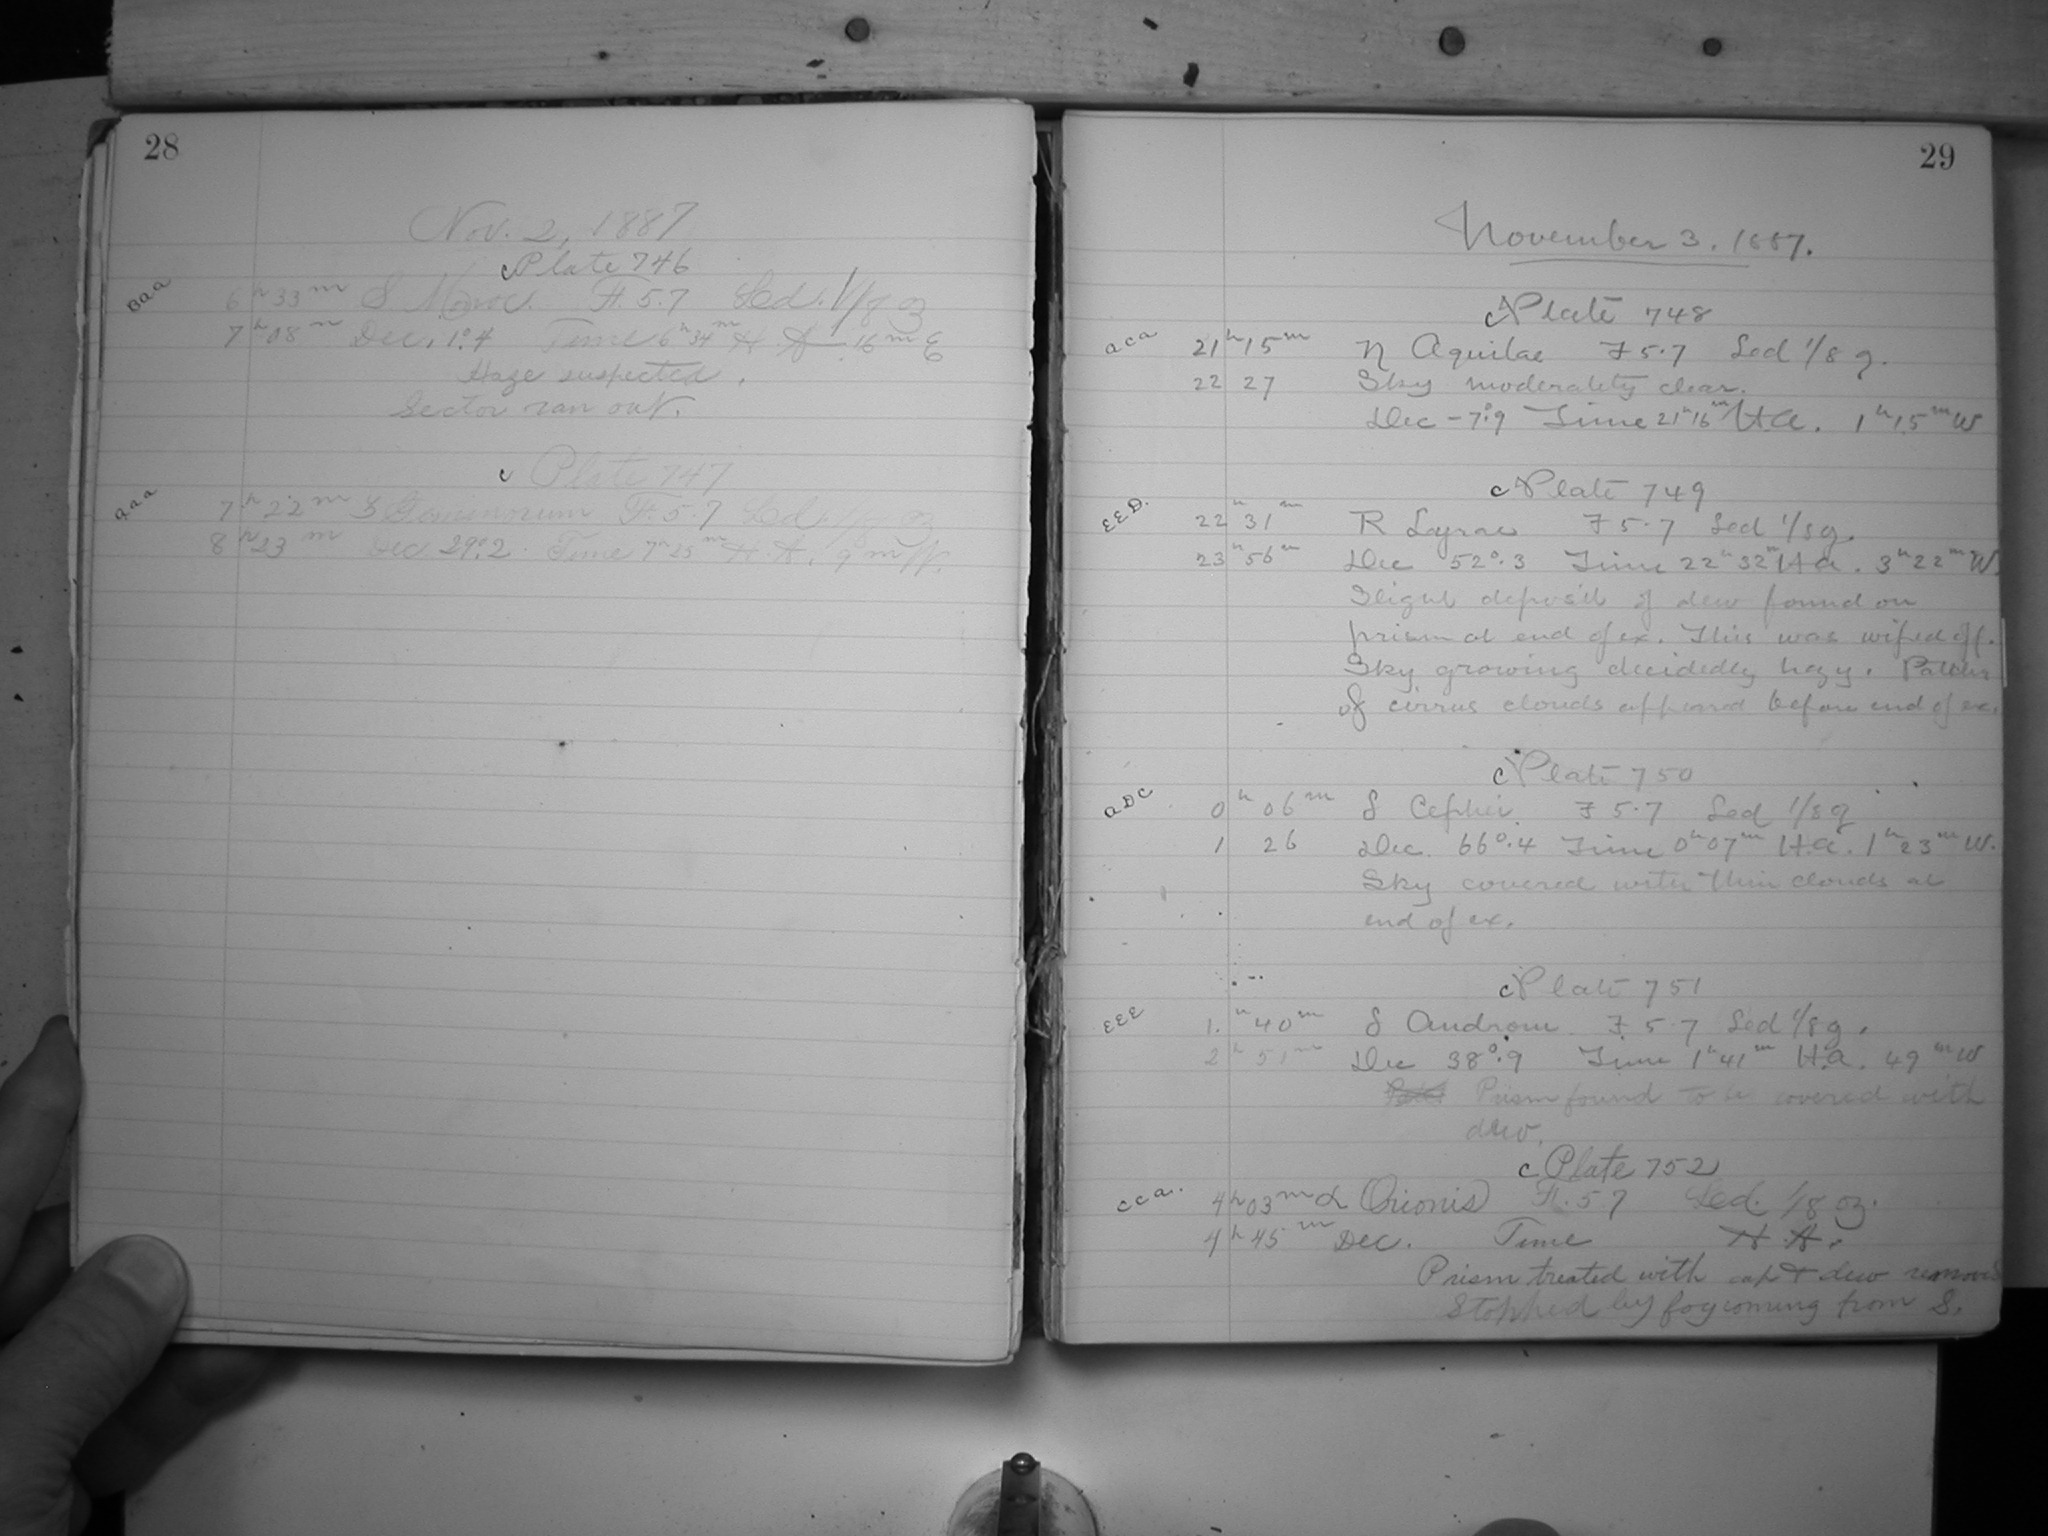 28
Nov. 2, 1887
c Plate 746
Baa 6h 33m S Monoc. F. 5.7 Sed. 1/8 oz
7h 08m Dec. 1°.4 Time 6h 34m H. A. 16m E
Haze suspected.
Sector ran out.
c Plate 747
aaa 7h 22m S Geminorum F. 5.7 Sed. 1/8 oz
8h 23m Dec 29°.2. Time 7h 25m H. A. 9m W.
29
November 3. 1887.
c Plate 748
aca 21h 15m η Aquilae F 5.7 Sed 1/8 g.
22 27 Sky moderately clear.
Dec -7°.9 Time 21h 16m H.a. 1h 15m W
c Plate 749
EED. 22h 31m R Lyrae F 5.7 Sed 1/8 g.
23h 56m Dec 52°.3 Time 22h 32m H a. 3h 22m W.
Slight deposit of dew found on
prism at end of ex. This was wiped off.
Sky growing decidedly hazy. Patches
of cirrus clouds appeared before end of ex.
c Plate 750
aDC 0h 06m δ Cephei. F 5.7 Sed 1/8 g
1 26 Dec. 66°.4 Time 0h 07m H.a. 1h 23m W.
Sky covered with thin clouds at
end of ex.
c Plate 751
EEE 1.h 40m δ Androm. F 5.7 Sed 1/8 g.
2h 51m Dec 38°.9 Time 1h 41m H.a. 49m W
Prism found to be covered with
dew.
c Plate 752
cca. 4h 03m α Orionis F. 5 7 Sed. 1/8 oz.
4h 45m Dec. Time H. A.
Prism treated with cap & dew removed
Stopped by fog coming from S.